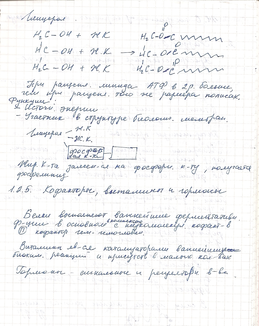 Глицерол
H₂C – OH + Ж.К. H₂C – O – C
HC – OH + Ж.К. → HC – O – C
H₂C – OH + Ж.К. H₂C – O – C
O
При расщепл. липида АТФ в 2 р. больше,
чем при расщепл. того же размера полисах.
Функции:
- Источн. энергии
- Участник в структуре биологич. мембран.
Глицерол – Ж.К.
– Ж.К.
фосфор
ная к-та
Жир. к-та замен-ся на фосфорн. к-ту, получается
фосфолипид
1.2.5. Кофакторы, витамины и гормоны
Белки выполняют важнейшие ферментативн.
функции в основном с
кофактор гем. гемоглобин
Витамины яв-ся катализаторами важнейших
биохим. реакций и присутств в малых кол-вах
Гормоны - сигнальные и рецепторн. в-ва.